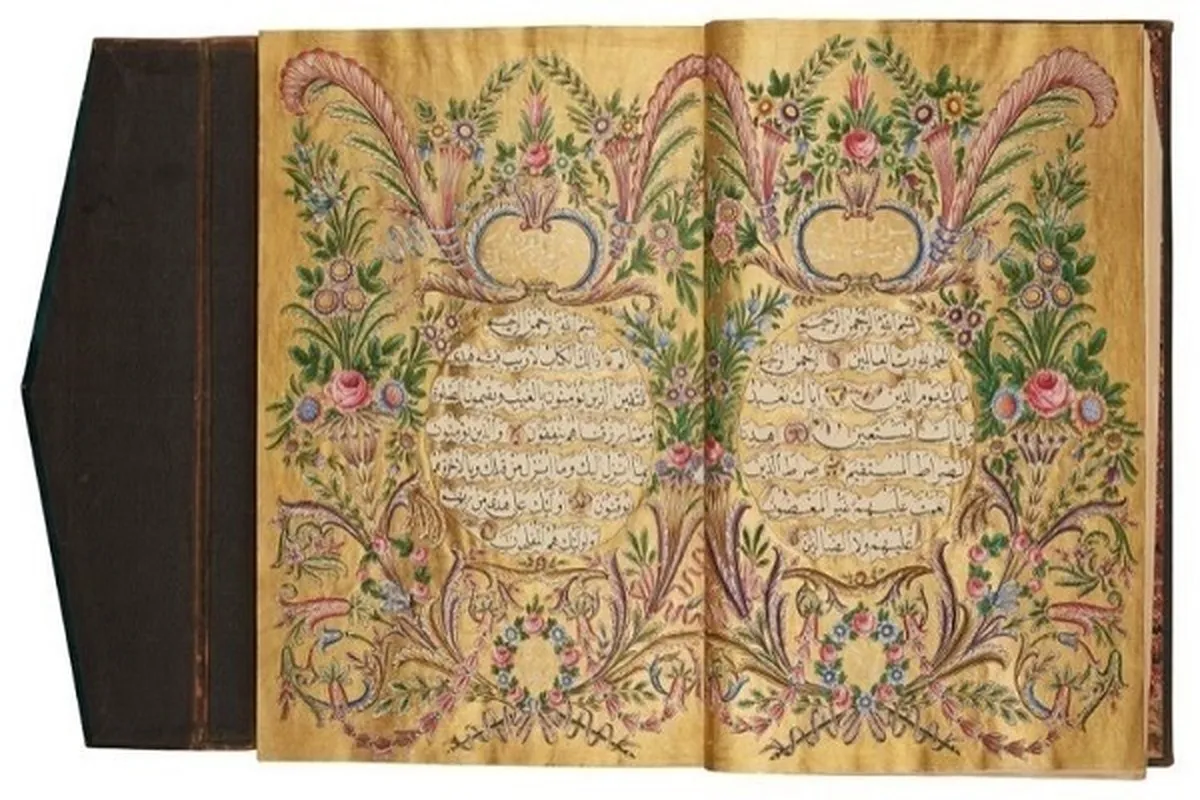 بسم الله الرحمن الرحيم
الحمد لله رب العالمين الرحمن الرحيم
مالك يوم الدين اياك نعبد
واياك نستعين اهدنا
الصراط المستقيم صراط الذين
انعمت عليهم غير المغضوب
عليهم ولا الضالين
بسم الله الرحمن الرحيم
الم ذلك الكتاب لا ريب فيه هدى
للمتقين الذين يؤمنون بالغيب ويقيمون الصلوة
ومما رزقناهم ينفقون والذين يؤمنون
بما انزل اليك وما انزل من قبلك وبالاخرة هم
يوقنون اولئك على هدى من ربهم
واولئك هم المفلحون